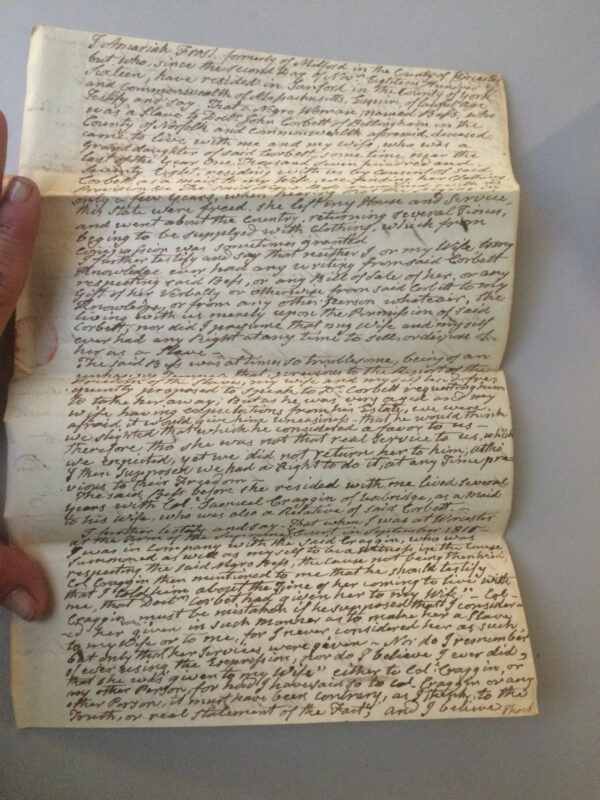 I Amariah Frost, formerly of Milford in the County of Worcester
but who, since the second Day of Nov.r Eighteen Hundred &
Sixteen, have resided in Sanford in the County of York
and Commonwealth of Massachusetts, Esquire, of lawful Age
Testify and say, That a Negro Woman, named Bess, who
was a Slave to Doct.r John Corbett of Bellingham in the
County of Norfolk and Commonwealth aforesaid, deceased
came to live with me and my Wife, who was a
grand daughter of said Corbett, some time near the
last of the Year One Thousand Seven hundred and
Seventy Eight, residing with us by Consent of said
Corbett as a maid to my Wife, we finding her Clothing
Provision &c. The said
only a few Years, when
this State were freed, she left my House and Service,
and went about the Country, returning several Times,
beging to be supplyed with Clothing, which from
Compassion was sometimes granted
I further testify and say that neither I or my Wife to my
Knowledge ever had any writing from said Corbett
respecting said Bess, or any Bill of Sale of her, or any
Gift of her Verbally or otherwise from said Corbett to my
Knowledge, or from any other Person whatever, She
living with us merely upon the Permission of said
Corbett, nor did I presume that my Wife and myself
ever had any Right at any time to sell, or dispose of
her as a Slave
The said Bess was at times so troublesome, being of an
previous to the Report of the
Freedom of the Slaves, my Wife and myself
quently proposed to speak to Dr. Corbett requesting him
to take her away; But as he was very aged and my
Wife having expectations from his Estate, we were
afraid it would give him uneasiness that he would think
we slighted that which he considered a favor to us—
therefore, tho she was not that real Service to us, which
we expected, yet we did not return her to him, altho'
I then supposed we had a Right to do it, at any Time pre-
vious to their Freedom—
The said Bess before she resided with me lived several
years with Col.o Samuel Craggin of Uxbridge, as a maid
to his Wife, who was also a Relative of said Corbett—
I further testify and say, That when I was at Worcester
at the Term of the Supreme Court in September 1816
I was in Company with the said Craggin, who was
Summoned as well as myself to be a witness in the Cause
respecting the said Negro Bess, the Cause not being then tried,
Col. Craggin then mentioned to me that he should testify
that I told him about the Time of her coming to live with
me, "that Doct.r Corbet had given her to my Wife"— Col.o
Craggin must be mistaken if he supposed that I consider-
ed her given in such Manner as to make her a Slave,
to my Wife or to me, for I never considered her as such
but only that her Services were given— Nor do I remember
of ever using the Expression, nor do I believe I ever did,
"that she was given to my Wife" either to Col. Craggin, or
any other Person, for had I have said so to Col. Craggin or any
other Person, it must have been contrary, as I think, to the
Truth, or real Statement of the Fact, and I believe